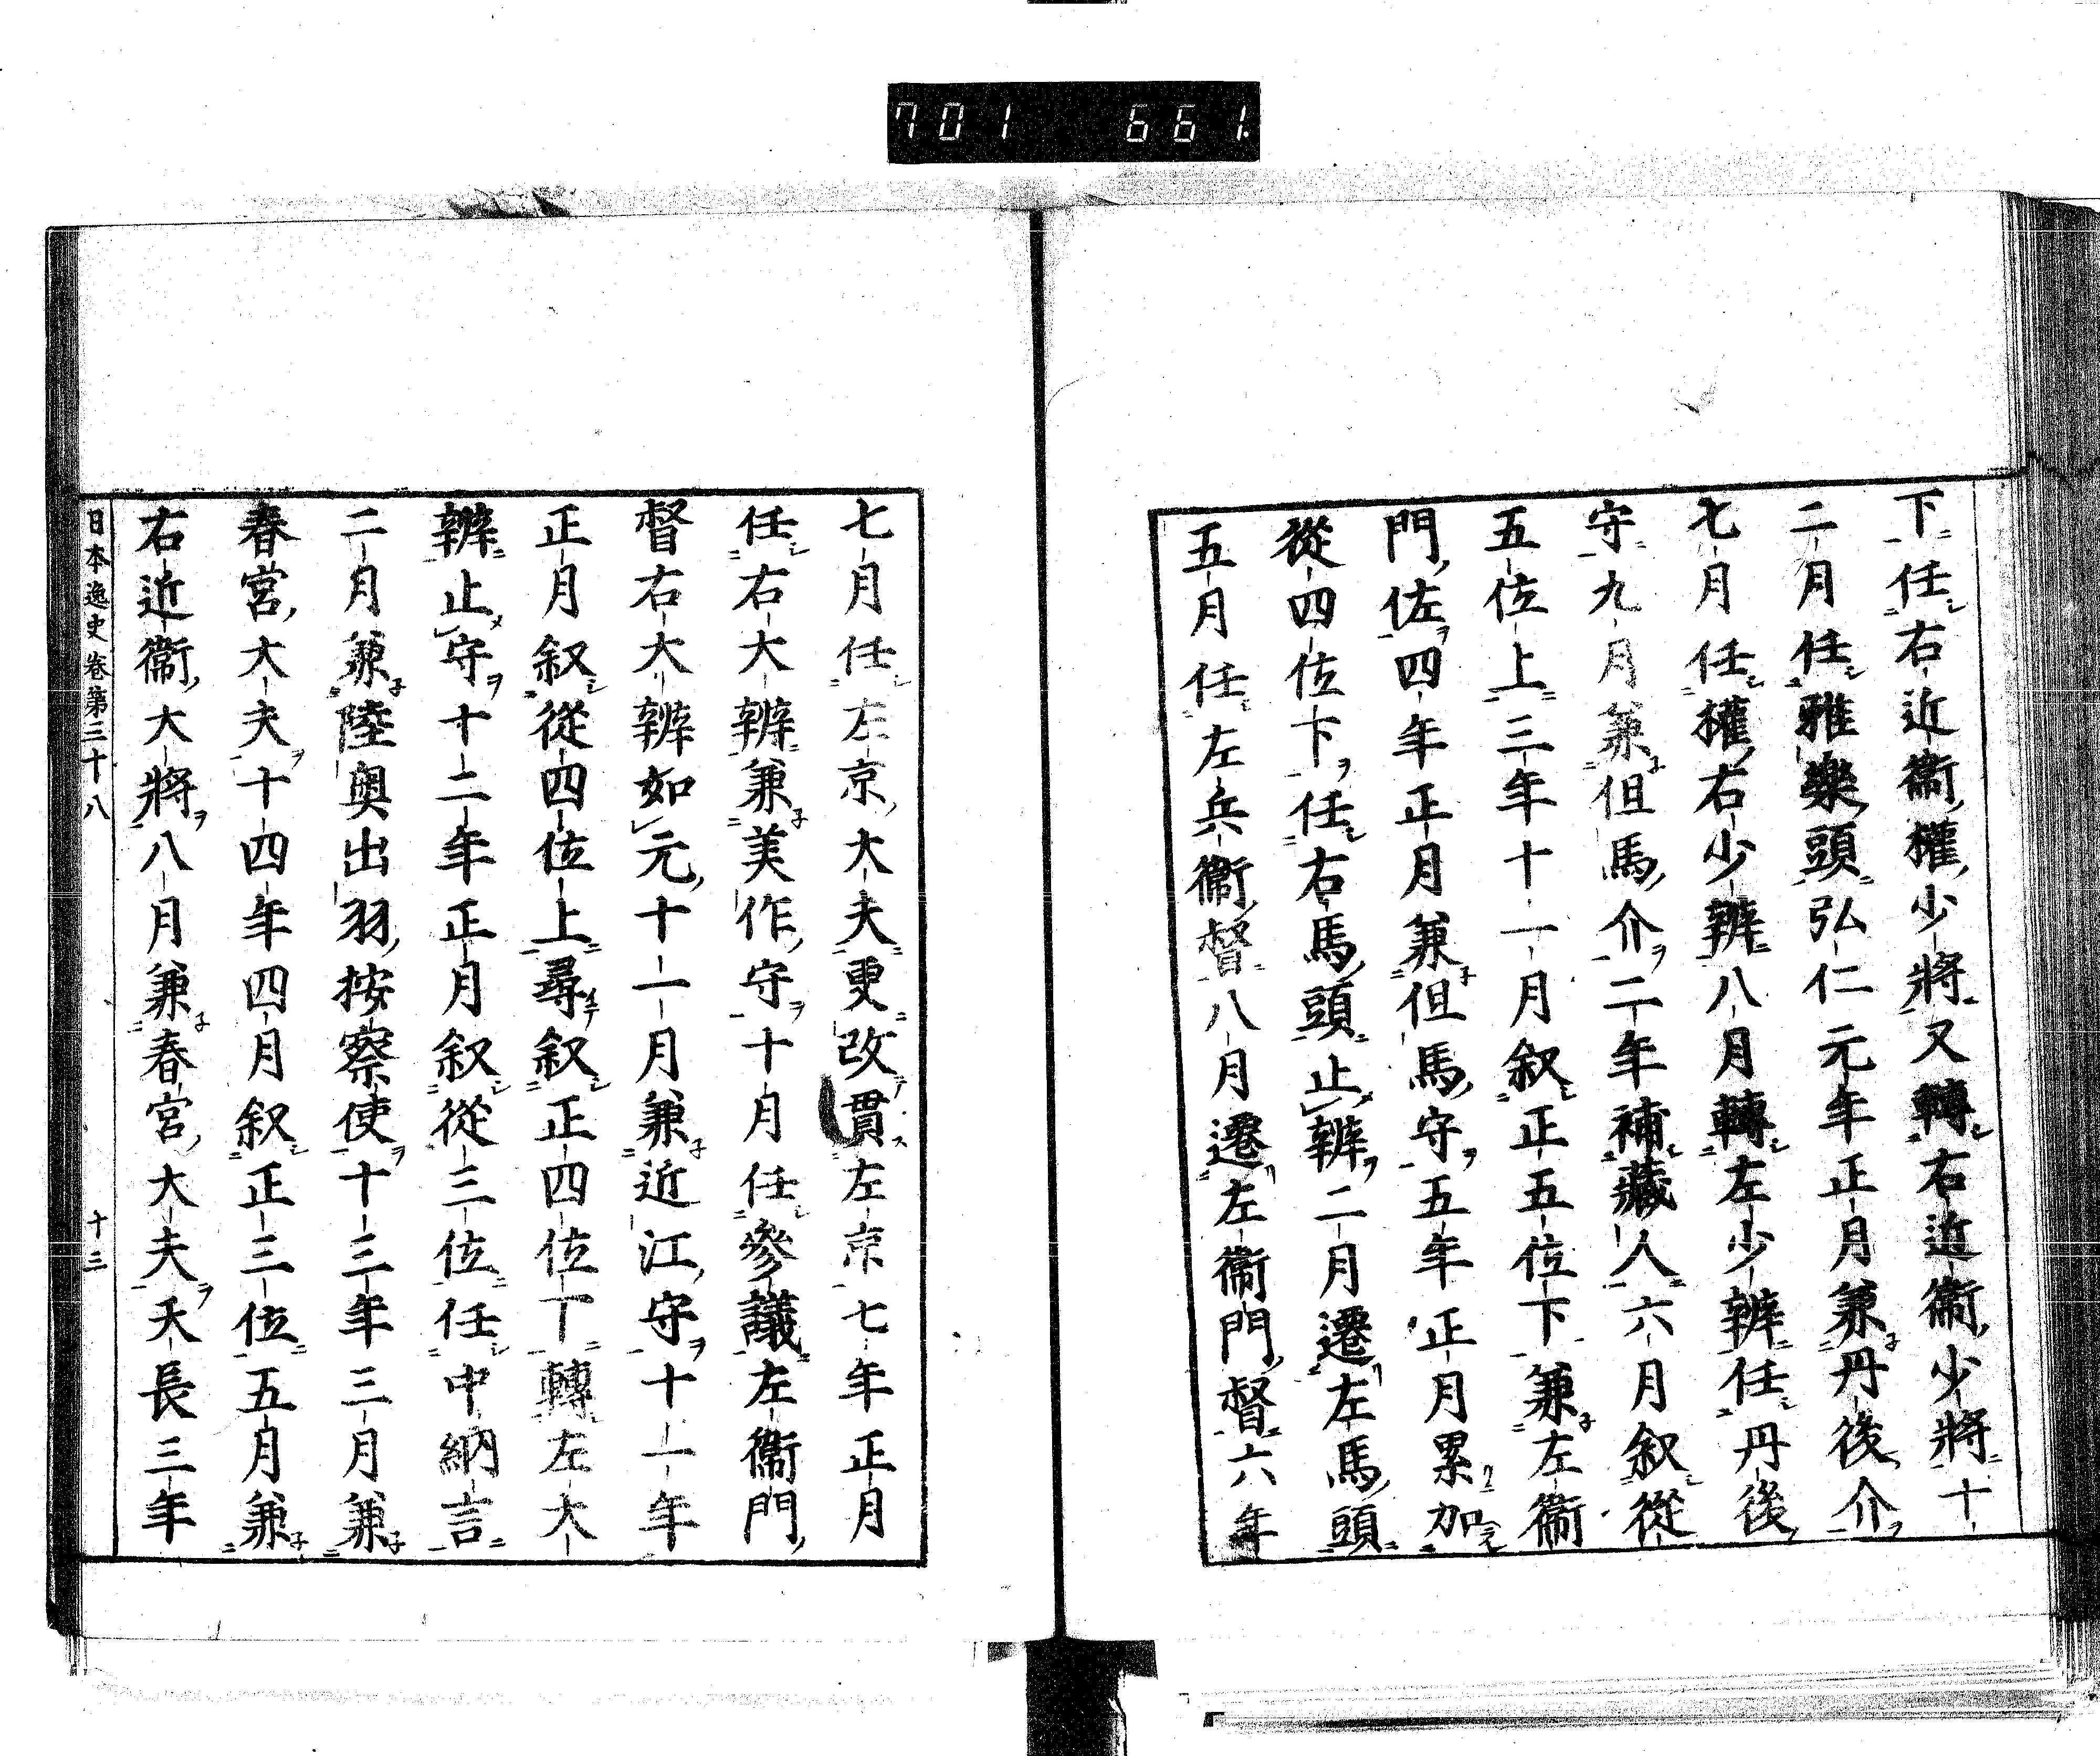 701 661.
下任右近衞權少將又轉右近衞少將十
二月任雅樂頭弘仁元年正月兼丹後介
七月任權右少辨八月轉左少辨任丹後
守九月兼但馬介二年補藏人六月叙從
五位上三年十一月叙正五位下兼左衞
門佐四年正月兼但馬守五年正月累加
從四位下任右馬頭止辨二月遷左馬頭
五月任左兵衞督八月遷左衞門督六年
七月任左京大夫更改貫左京七年正月
任右大辨兼美作守十月任參議左衞門
督右大辨如元十一月兼近江守十一年
正月叙從四位上尋叙正四位下轉左大
辨止守十二年正月叙從三位任中納言
二月兼陸奧出羽按察使十三年三月兼
春宮大夫十四年四月叙正三位五月兼
右近衞大將八月兼春宮大夫天長三年
日本逸史卷第三十八 十三